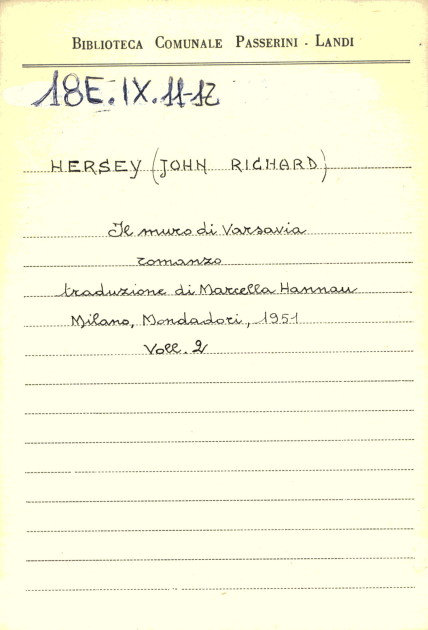 BIBLIOTECA COMUNALE PASSERINI - LANDI
18E.IX.11-12
HERSEY (JOHN RICHARD)
Il muro di Varsavia
romanzo
traduzione di Marcella Hannau
Milano, Mondadori, 1951
Voll. 2